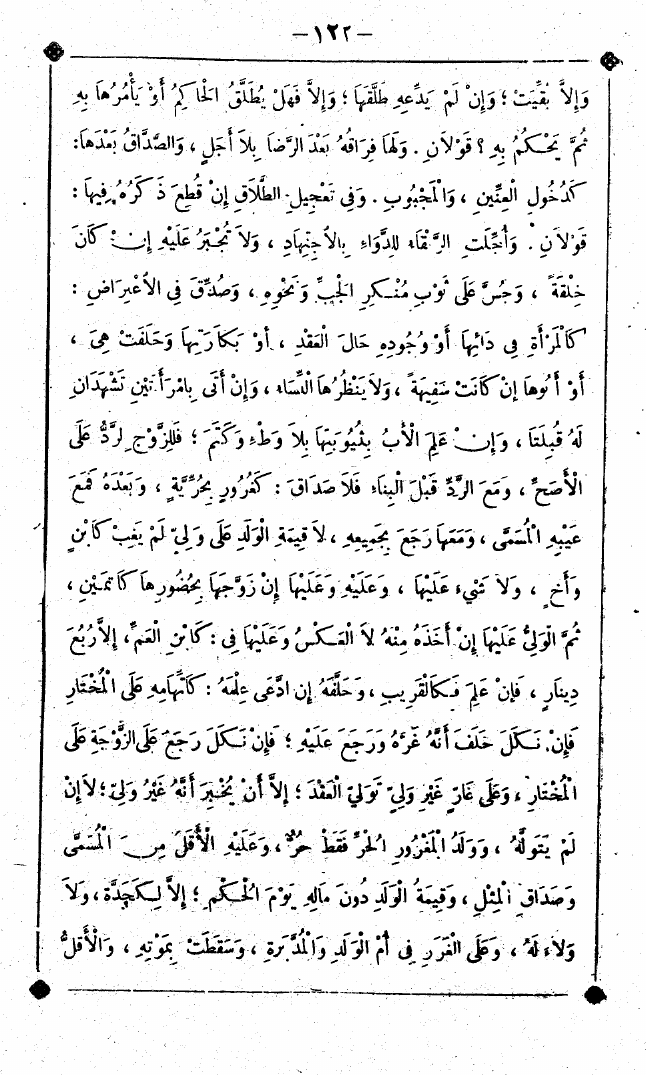 — ١٢٢ —
وَإِلاَّ بُقِّيَتْ؛ وَإِنْ لَمْ يَدَّعِهِ طَلَّقَهَا؛ وَإِلاَّ فَهَلْ يُطَلِّقُ الْحَاكِمُ أَوْ يَأْمُرُهَا بِهِ
ثُمَّ يَحْكُمُ بِهِ؟ قَوْلاَنِ. وَلَهَا فِرَاقُهُ بَعْدَ الرِّضَا بِلاَ أَجَلٍ، وَالصَّدَاقُ بَعْدَهَا:
كَدُخُولِ الْعِنِّينِ، وَالْمَجْبُوبِ. وَفِي تَعْجِيلِ الطَّلاَقِ إِنْ قُطِعَ ذَكَرُهُ فِيهَا:
قَوْلاَنِ. وَأُجِّلَتِ الرَّتْقَاءُ لِلدَّوَاءِ بِالاِجْتِهَادِ، وَلاَ تُجْبَرُ عَلَيْهِ إِنْ كَانَ
خِلْقَةً، وَجُسَّ عَلَى ثَوْبِ مُنْكِرِ الْجَبِّ وَنَحْوِهِ، وَصُدِّقَ فِي الاِعْتِرَاضِ:
كَالْمَرْأَةِ فِي دَائِهَا أَوْ وُجُودِهِ حَالَ الْعَقْدِ، أَوْ بَكَارَتِهَا وَحَلَفَتْ هِيَ،
أَوْ أَبُوهَا إِنْ كَانَتْ سَفِيهَةً، وَلاَ يَنْظُرُهَا النِّسَاءُ، وَإِنْ أَتَى بِامْرَأَتَيْنِ تَشْهَدَانِ
لَهُ قُبِلَتَا، وَإِنْ عَلِمَ الْأَبُ بِثُيُوبَتِهَا بِلاَ وَطْءٍ وَكَتَمَ؛ فَلِلزَّوْجِ الرَّدُّ عَلَى
الْأَصَحِّ، وَمَعَ الرَّدِّ قَبْلَ الْبِنَاءِ فَلاَ صَدَاقَ: كَغُرُورٍ بِحُرِّيَّةٍ، وَبَعْدَهُ فَمَعَ
عَيْبِهِ الْمُسَمَّى، وَمَعَهَا رَجَعَ بِجَمِيعِهِ، لاَ قِيمَةِ الْوَلَدِ عَلَى وَلِيٍّ لَمْ يَغِبْ كَابْنٍ
وَأَخٍ، وَلاَ شَيْءَ عَلَيْهَا، وَعَلَيْهِ وَعَلَيْهَا إِنْ زَوَّجَهَا بِحُضُورِهَا كَاتِمَيْنِ،
ثُمَّ الْوَلِيُّ عَلَيْهَا إِنْ أَخَذَهُ مِنْهُ لاَ الْعَكْسُ وَعَلَيْهَا فِي: كَابْنِ الْعَمِّ، إِلاَّ رُبُعَ
دِينَارٍ، فَإِنْ عَلِمَ فَكَالْقَرِيبِ، وَحَلَّفَهُ إِنِ ادَّعَى عِلْمَهُ: كَاتِّهَامِهِ عَلَى الْمُخْتَارِ
فَإِنْ نَكَلَ حَلَفَ أَنَّهُ غَرَّهُ وَرَجَعَ عَلَيْهِ؛ فَإِنْ نَكَلَ رَجَعَ عَلَى الزَّوْجَةِ عَلَى
الْمُخْتَارِ، وَعَلَى غَارٍّ غَيْرِ وَلِيٍّ تَوَلَّى الْعَقْدَ؛ إِلاَّ أَنْ يُخْبِرَ أَنَّهُ غَيْرُ وَلِيٍّ؛ لاَ إِنْ
لَمْ يَتَوَلَّهُ، وَوَلَدُ الْمَغْرُورِ الْحُرِّ فَقَطْ حُرٌّ، وَعَلَيْهِ الْأَقَلُّ مِنَ الْمُسَمَّى
وَصَدَاقِ الْمِثْلِ، وَقِيمَةُ الْوَلَدِ دُونَ مَالِهِ يَوْمَ الْحُكْمِ؛ إِلاَّ لِكَجَدَّةٍ، وَلاَ
وَلاَءَ لَهُ، وَعَلَى الْغَرَرِ فِي أُمِّ الْوَلَدِ وَالْمُدَبَّرَةِ، وَسَقَطَتْ بِمَوْتِهِ، وَالْأَقَلُّ